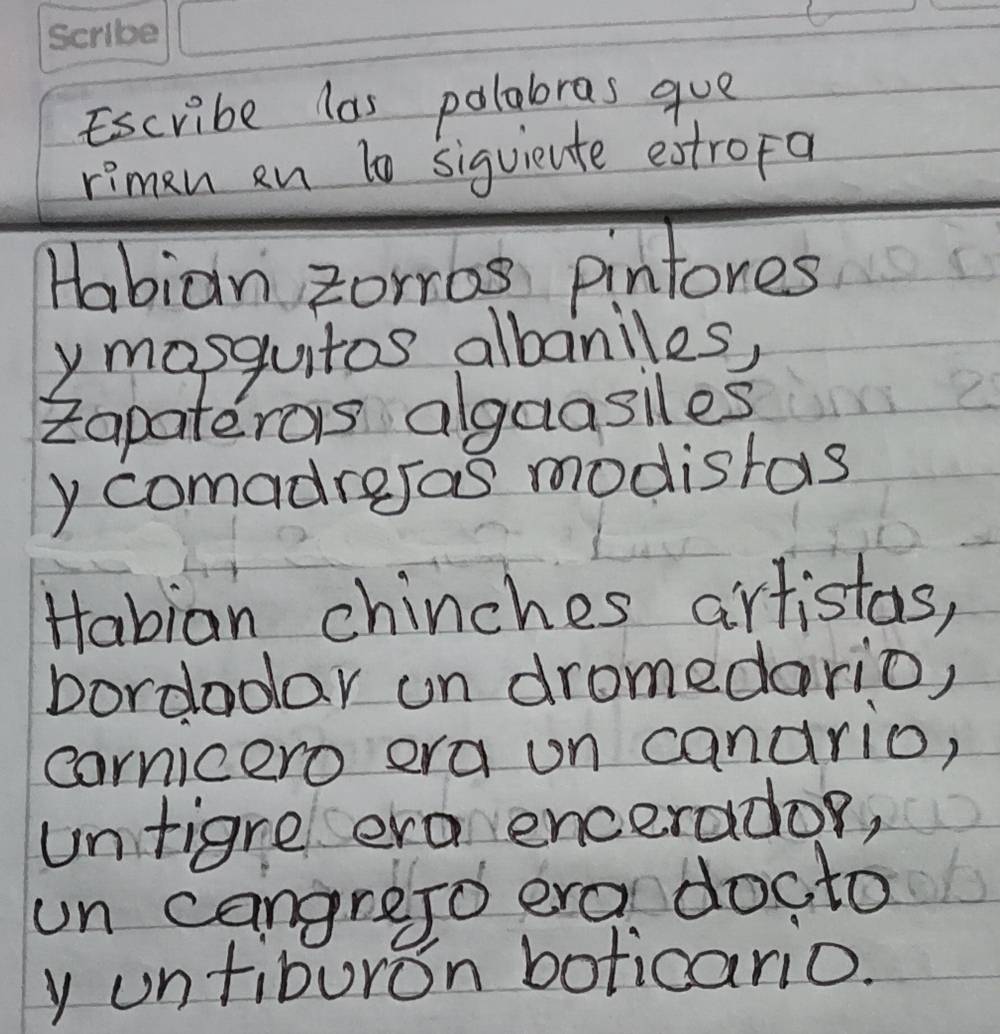 Scribe
Escribe las palabras que
rimen en la siguiente estrofa
Habian zorros pintores
y mosquitos albaniles,
zapateros algaasiles
y comadrejas modistas
Habian chinches artistas,
bordador un dromedario,
carnicero era un canario,
un tigre era encerador,
un cangrejo era docto
y un tiburón boticario.